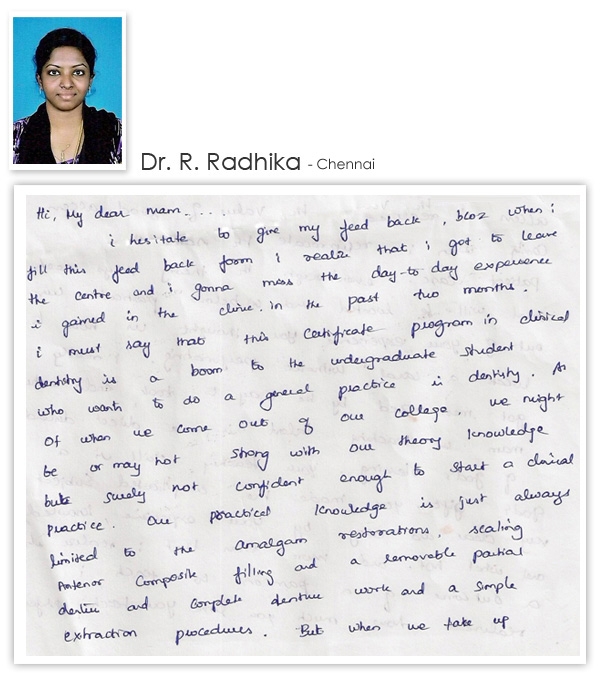 Dr. R. Radhika - Chennai
Hi, My dear mam....
i hesitate to give my feed back, bcoz when i
fill this feed back form i realize that i got to leave
the centre and i gonna miss the day-to-day experience
i gained in the clinic. in the past two months.
i must say that this certificate program in clinical
dentistry is a boom to the undergraduate student
who wants to do a general practice in dentistry. As
of when we come out of our college. we might
be or may not strong with our theory knowledge
but surely not confident enough to start a clinical
practice. Our practical knowledge is just always
limited to the amalgam restorations, scaling
Anterior composite filling and a removable partial
dentur and complete denture work and a simple
extraction procedures. But when we take up